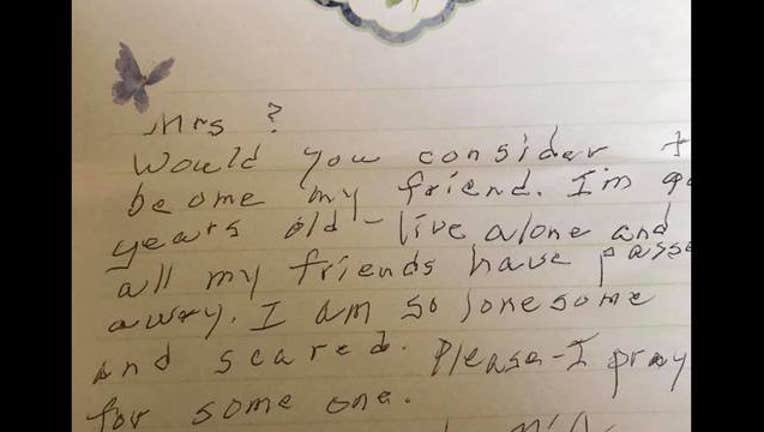 Mrs ?
Would you consider t
be ome my friend. I'm 90
years old - live alone and
all my friends have passe
away. I am so lonesome
and scared. Please - I pray
for some one.